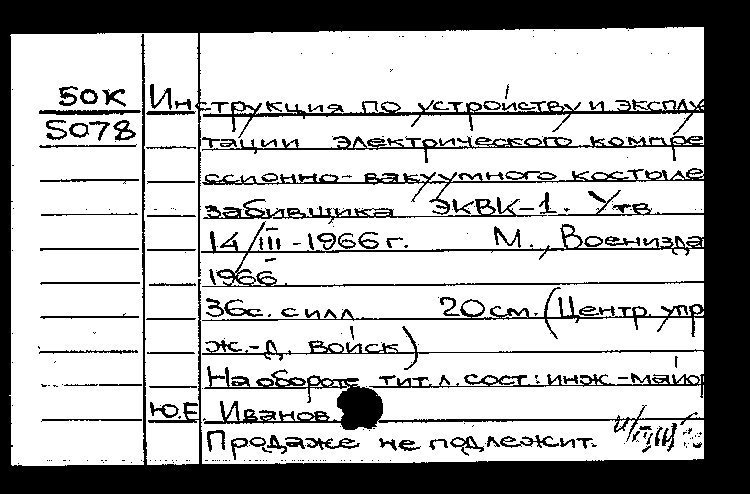 50К Инструкция по устройству и эксплу
5078 тации электрического компре
ссионно-вакуумного костыле
забивщика ЭКВК-1. Утв.
14/III-1966г. М., Воениздa
1966.
36с. с илл. 20см. (Центр. упр
ж.-д. войск)
На обороте тит. л. сост.: инж.-майор
Ю.Е. Иванов.
Продаже не подлежит.